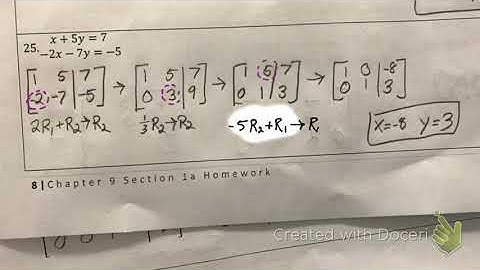 25. x + 5y = 7
-2x - 7y = -5
[1 5 | 7; -2 -7 | -5] → [1 5 | 7; 0 3 | 9] → [1 5 | 7; 0 1 | 3] → [1 0 | -8; 0 1 | 3]
2R₁+R₂→R₂ ⅓R₂→R₂ -5R₂+R₁→R₁
x=-8 y=3
8 | Chapter 9 Section 1a Homework
Created with Doceri